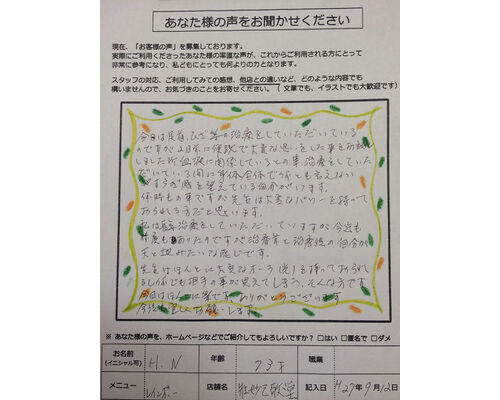 あなた様の声をお聞かせください
現在、「お客様の声」を募集しております。
実際にご利用くださったあなた様の率直な声が、これからご利用される方にとって
非常に参考になり、私どもにとっても何よりの力となります。
スタッフの対応、ご利用してみての感想、他店との違いなど、どのような内容でも
構いませんので、お気づきのことをお寄せください。（文章でも、イラストでも大歓迎です）
の治療をしていただいている
のですが2日係に便秘で大変な思いをした事をお話
しました所血液に関係しているとの事治療をしていた
だいている間に身体全体で何とも言えない
を覚えている自分がいます。
何時もの事ですが先生は大変なパワーを持って
おられる方だと思います。
私は長年治療をしていただいていますが今迄も
何度もありたのですが治療前と治療後の自分が
天と地みたいな感じです。
先生はほんとに大変なオーラ(光)を持っておられ
るし何でも相手の事が見えてしまう、そんな方です
今日はほんとに楽です。ありがとうございます
今後も宜しくお願いします
※ あなた様の声を、ホームページなどでご紹介してもよろしいですか？ □はい □匿名で □ダメ
お名前 (イニシャル可) H.N 年齢 73才 職業
メニュー レインボー 店舗名 記入日 H27年9月12日